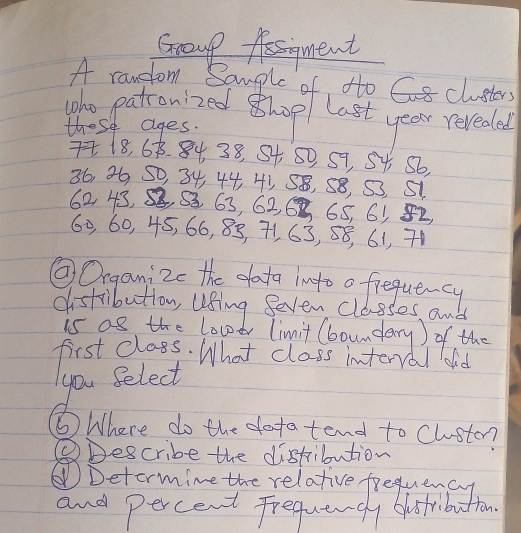 Group Assigment
A random Sample of 40 Cus clusters
who patronized Shop last year revealed
these ages.
77, 18, 63, 84, 38, 54, 50, 59, 54, 56,
36, 26, 50, 34, 44, 41, 58, 58, 53, 51,
62, 43, 52, 53, 63, 62, 62, 65, 61, 52,
60, 60, 45, 66, 83, 71, 63, 58, 61, 71
(a) Organize the data into a frequency
distribution, Using Seven Classes, and
15 as the lower limit (boundary) of the
first class. What class interval did
you Select
(b) Where do the data tend to Cluster?
(c) Describe the distribution
(d) Determine the relative frequency
and percent Frequency distribution.